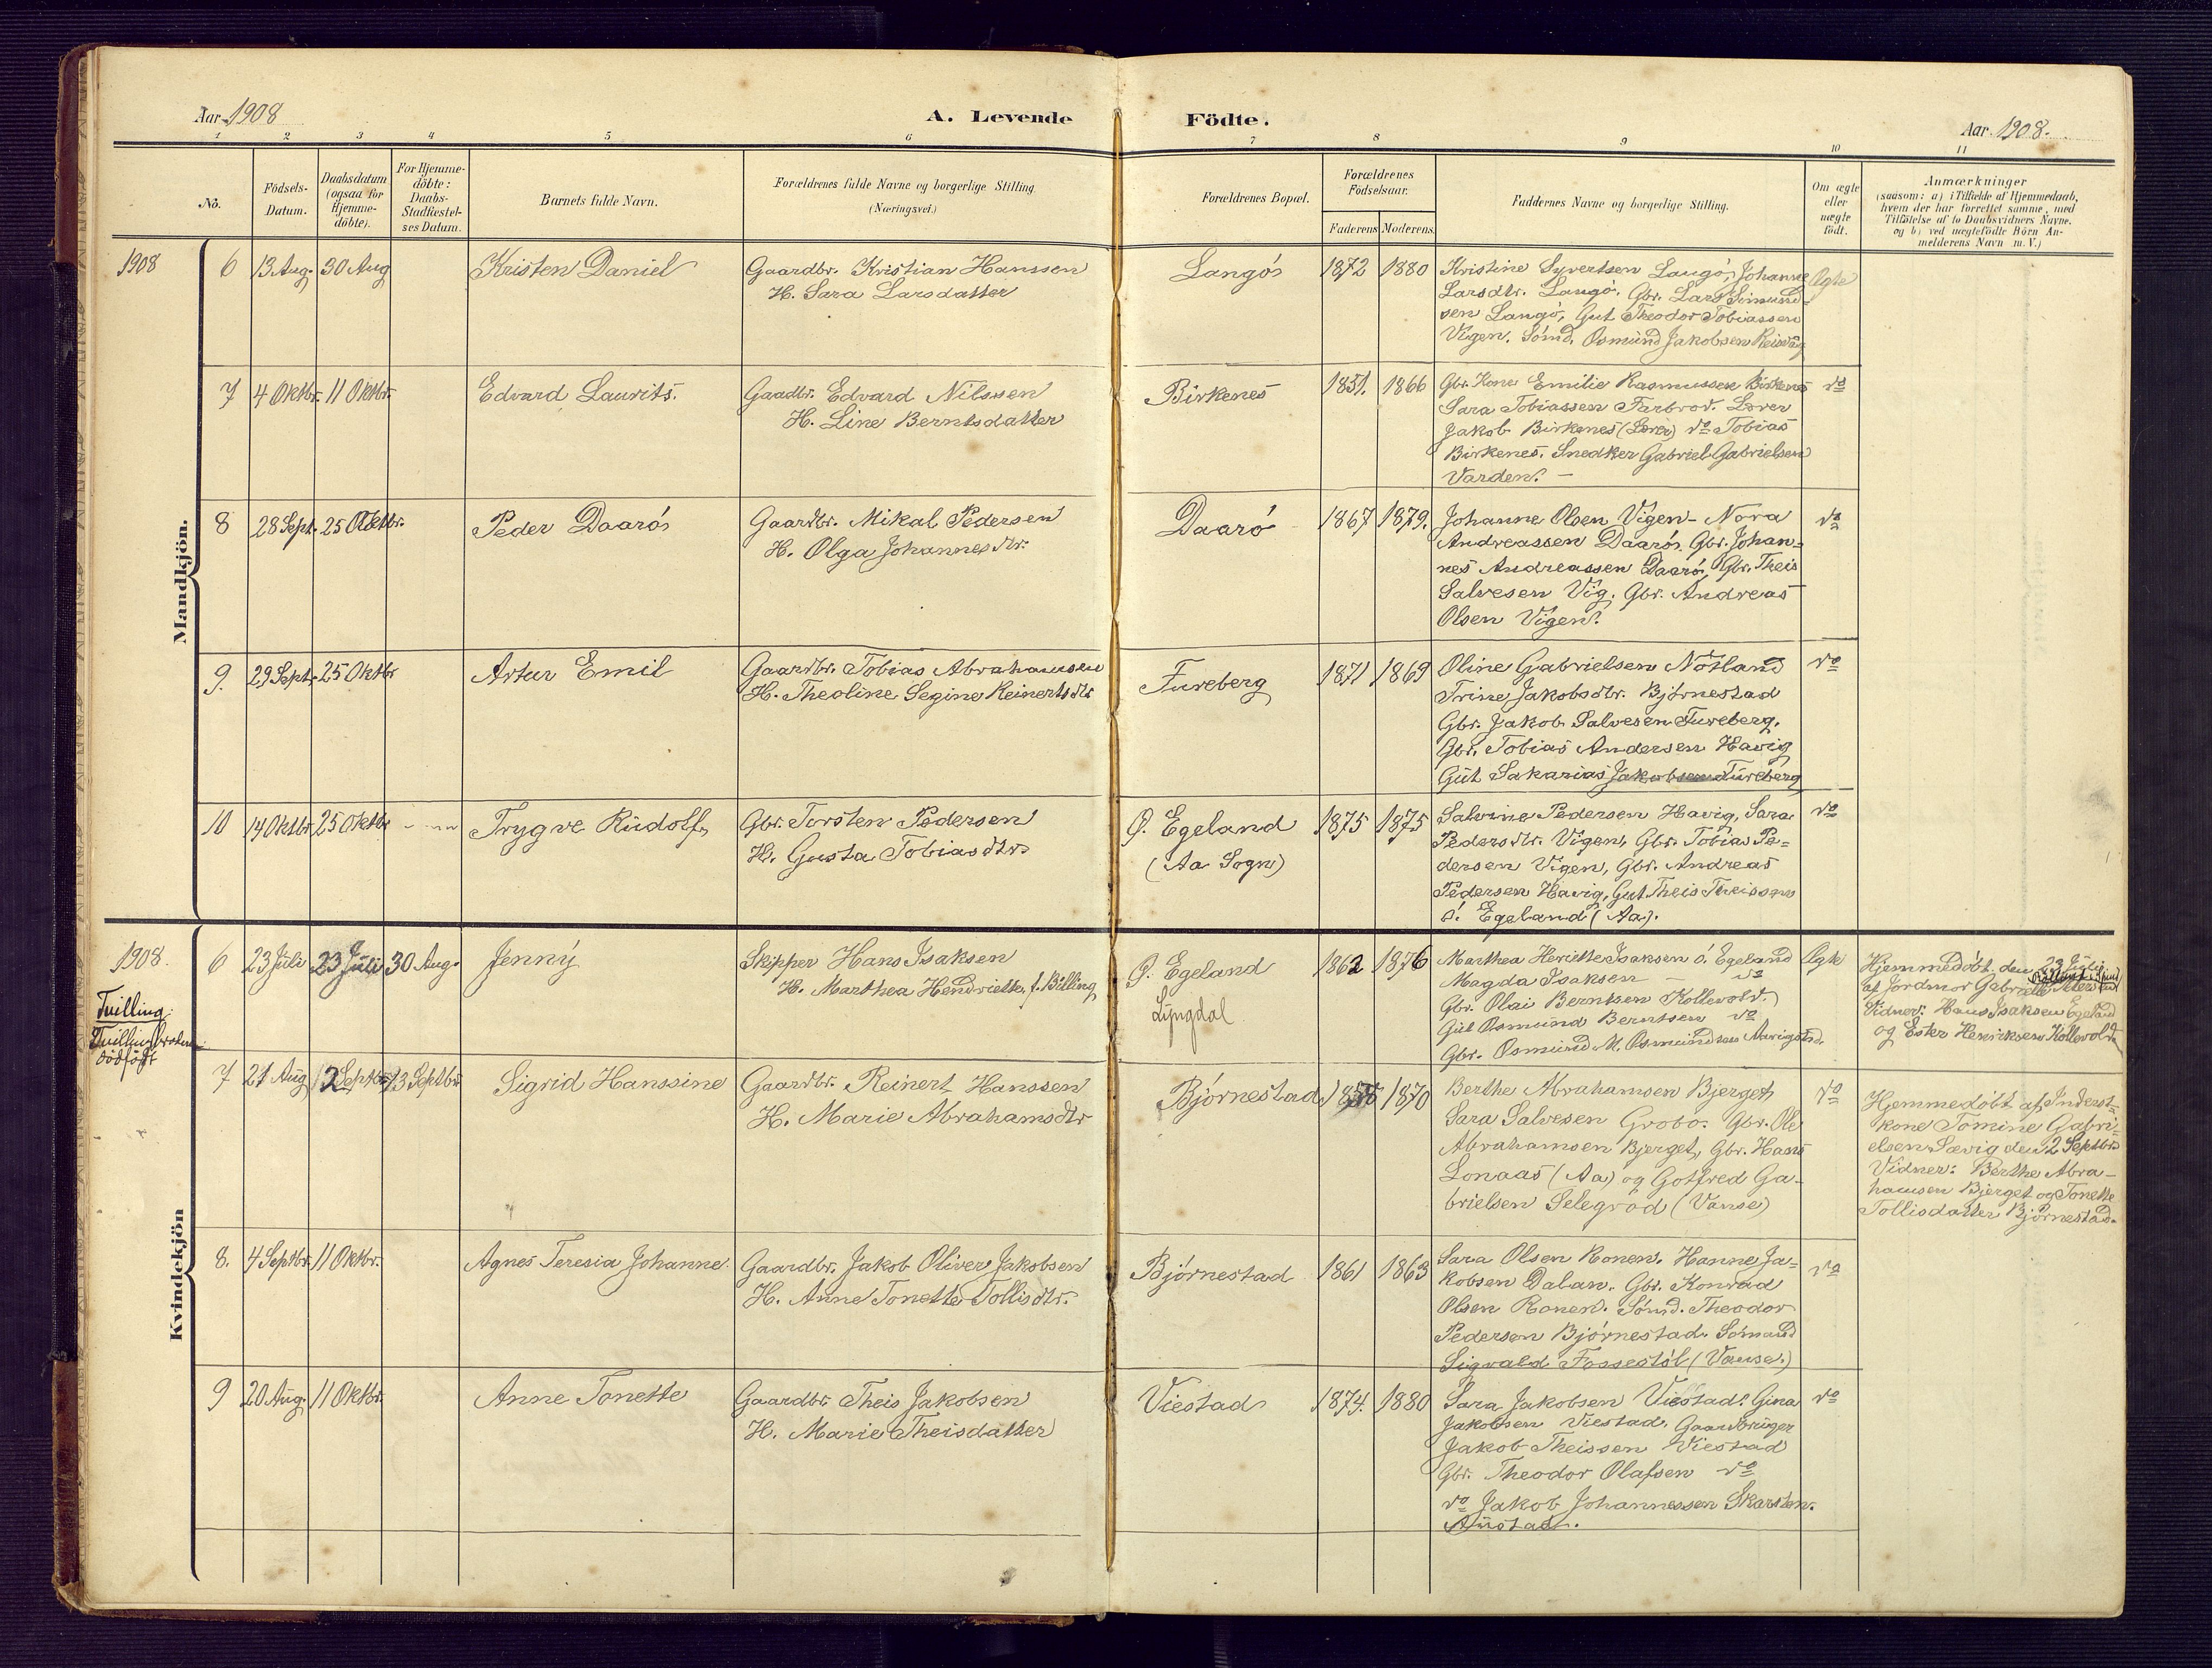 Aar 1908
A. Levende Födte.
Aar 1908.
1 2 3 4 5 6 7 8 9 10 11
No.
Födsels-
Datum.
Daabsdatum
(ogsaa for
Hjemme-
döbte).
For Hjemme-
döbte:
Daabs-
Stadfæstel-
ses Datum.
Barnets fulde Navn.
Forældrenes fulde Navne og borgerlige Stilling
(Næringsvei.)
Forældrenes Bopæl.
Forældrenes
Födselsaar.
Faderens Moderens.
Faddernes Navne og borgerlige Stilling.
Om ægte
eller
uægte
födt.
Anmærkninger
(saasom: a) i Tilfælde af Hjemmedaab,
hvem der har forrettet samme, med
Tilföielse af to Daabsvidners Navne,
og b) ved uægtefödte Börn An-
melderens Navn m. V.)
Mandkjön.
1908 6 13 Aug. 30 Aug Kristen Daniel
Gaardbr. Kristian Hanssen
H. Sara Larsdatter
Langö 1872 1880
Kristine Syvertsen Langö, Johanne
Larsdtr. Langö. Gbr. Lars Simund-
sen Langö, Gut Theodor Tobiassen
Vigen. Sömd. Osmund Jakobsen Reisvåg
Ægte
7 4 Oktbr. 11 Oktbr. Edvard Laurits.
Gaadbr. Edvard Nilssen
H. Line Berntsdatter
Birkenes 1851. 1866
Gbr. Kone Emilie Rasmussen Birkenes
Sara Tobiassen Farbrod. Lærer
Jakob Birkenes (Lærer) do Tobias
Birkenes. Snedker Gabriel Gabrielsen
Varden. –
do
8 28 Sept. 25 Oktbr. Peder Daarö
Gaardbr. Mikal Pedersen
H. Olga Johannesdtr.
Daarö 1867 1879.
Johanne Olsen Vigen - Nora
Andreassen Daarö, Gbr. Johan=
nes Andreassen Daarö, Gbr. Theis
Salvesen Vig. Gbr. Andreas
Olsen Vigen.
do
9. 29 Sept. 25 Oktbr Artur Emil
Gaardbr. Tobias Abrahamsen
H. Theoline Segine Reinertsdtr
Fureberg 1871 1869
Oline Gabrielsen Nötland
Trine Jakobsdtr. Björnestad
Gbr. Jakob Salvesen Fureberg.
Gbr. Tobias Andersen Havig
Gut Sakarias Jakobsen Fureberg
do
10 14 Oktbr. 25 Oktbr Trygve Rudolf
Gbr. Torsten Pedersen
H. Gusta Tobiasdtr.
Ø. Egeland
(Aa Sogn)
1875 1875
Salvine Pedersen Havig, Sara
Pedersdtr. Vigen, Gbr. Tobias Pe=
dersen Vigen, Gbr. Andreas
Pedersen Havig, Gut Theis Theissen
ö. Egeland (Aa).
do
Kvindekjön
1908.
Tvilling:
Tvillingbroderen
dödfödt
6 23 Juli 23 Juli 30 Aug. Jenny
Skipper Hans Isaksen
H. Marthea Hendriette f. Billing
Ø. Egeland
Lyngdal
1862 1876
Marthea Henriette Isaksen ö. Egeland
Magda Isaksen – do
Gbr. Olai Berntsen Kollevold.
Gut Osmund Berntsen do
Gbr. Osmund M. Osmundsen
Ægte
Hjemmedöbt den 23 Juli
af Jordmor Gabrielle
Vidner: Hans Isaksen Egeland
og Ester Henriksen Kollevold
7 21 Aug 2 Septbr 13 Septbr Sigrid Hanssine
Gaardbr. Reinert Hanssen
H. Marie Abrahamsdtr
Björnestad 1870
Berthe Abrahamsen Bjerget
Sara Salvesen Grobo. Gbr. Ole
Abrahamsen Bjerget, Gbr. Hans
Lonaas (Aa) og Gotfred Ga-
brielsen Selegröd (Vanse)
do
Hjemmedöbt af Inderst-
kone Tomine Gabri-
elsen Sævig den 2 Septbr.
Vidner: Berthe Abra-
hamsen Bjerget og Tonette
Tollisdatter Björnestad.
8. 4 Septbr. 11 Oktbr. Agnes Teresia Johanne.
Gaardbr. Jakob Oliver Jakobsen
H. Anne Tonette Tollisdtr.
Björnestad 1861 1863
Sara Olsen Ronen. Hanne Ja=
kobsen Dalan. Gbr. Konrad
Olsen Ronen. Sömd. Theodor
Pedersen Björnestad. Sömand
Sigvald Fossestöl (Vanse.)
do
9 20 Aug. 11 Oktbr. Anne Tonette
Gaardbr. Theis Jakobsen
H. Marie Theisdatter
Viestad 1874. 1880
Sara Jakobsen Viestad. Gina
Jakobsen Viestad. Gaardbruger
Jakob Theissen Viestad
Gbr. Theodor Olafsen do
do Jakob Johannessen Skarsten.
Aüstad.
do